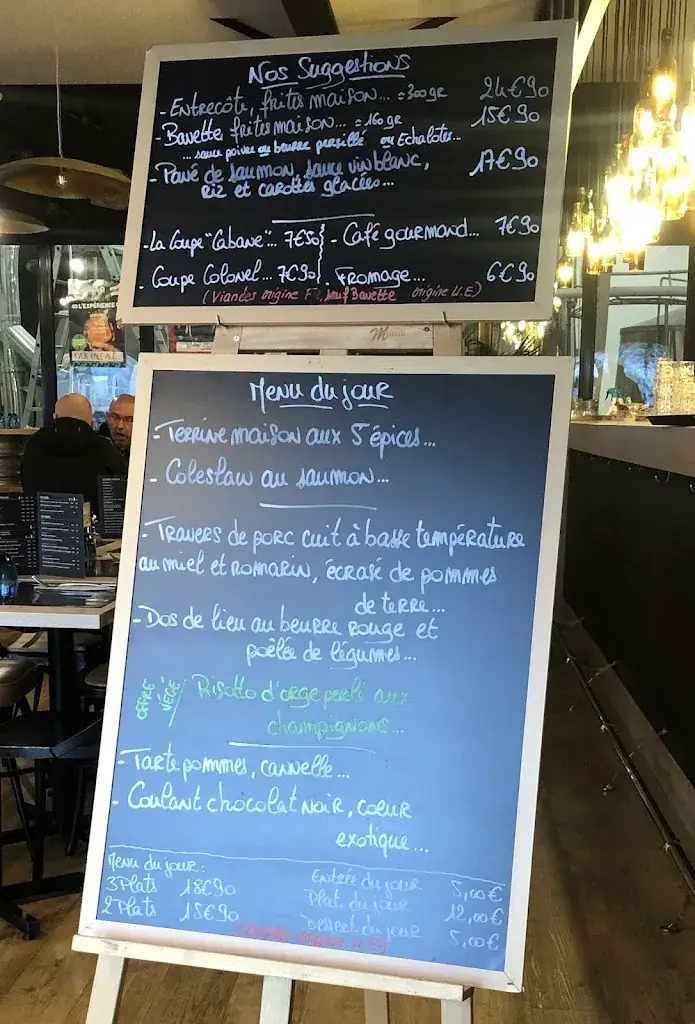 Nos Suggestions
- Entrecôte, frites maison... ≃ 300gr 24€90
- Bavette frites maison... ≃ 160gr 15€90
... sauce poivre ou beurre persillé ou Echalotes...
- Pavé de saumon, sauce vin blanc, 17€90
riz et carottes glacées...
- La Coupe "Cabane"... 7€50
- Café gourmand... 7€90
- Coupe Colonel... 7€90
- Fromage... 6€90
(Viandes origine F Sauf Bavette origine U.E)
L'EXPÉRIENCE
Menu du jour
- Terrine maison aux 5 épices...
- Coleslaw au saumon...
- Travers de porc cuit à basse température
au miel et romarin, écrasé de pommes
de terre...
- Dos de lieu au beurre rouge et
poêlée de légumes...
OFFRE VÉGÉ
Risotto d'orge perlé aux
champignons...
- Tarte pommes, cannelle...
- Coulant chocolat noir, coeur
exotique...
Menu du jour:
3 Plats 18€90
2 Plats 15€90
Entrée du jour 5,00€
Plat du jour 12,00€
Dessert du jour 5,00€
(Viandes origine U.E)